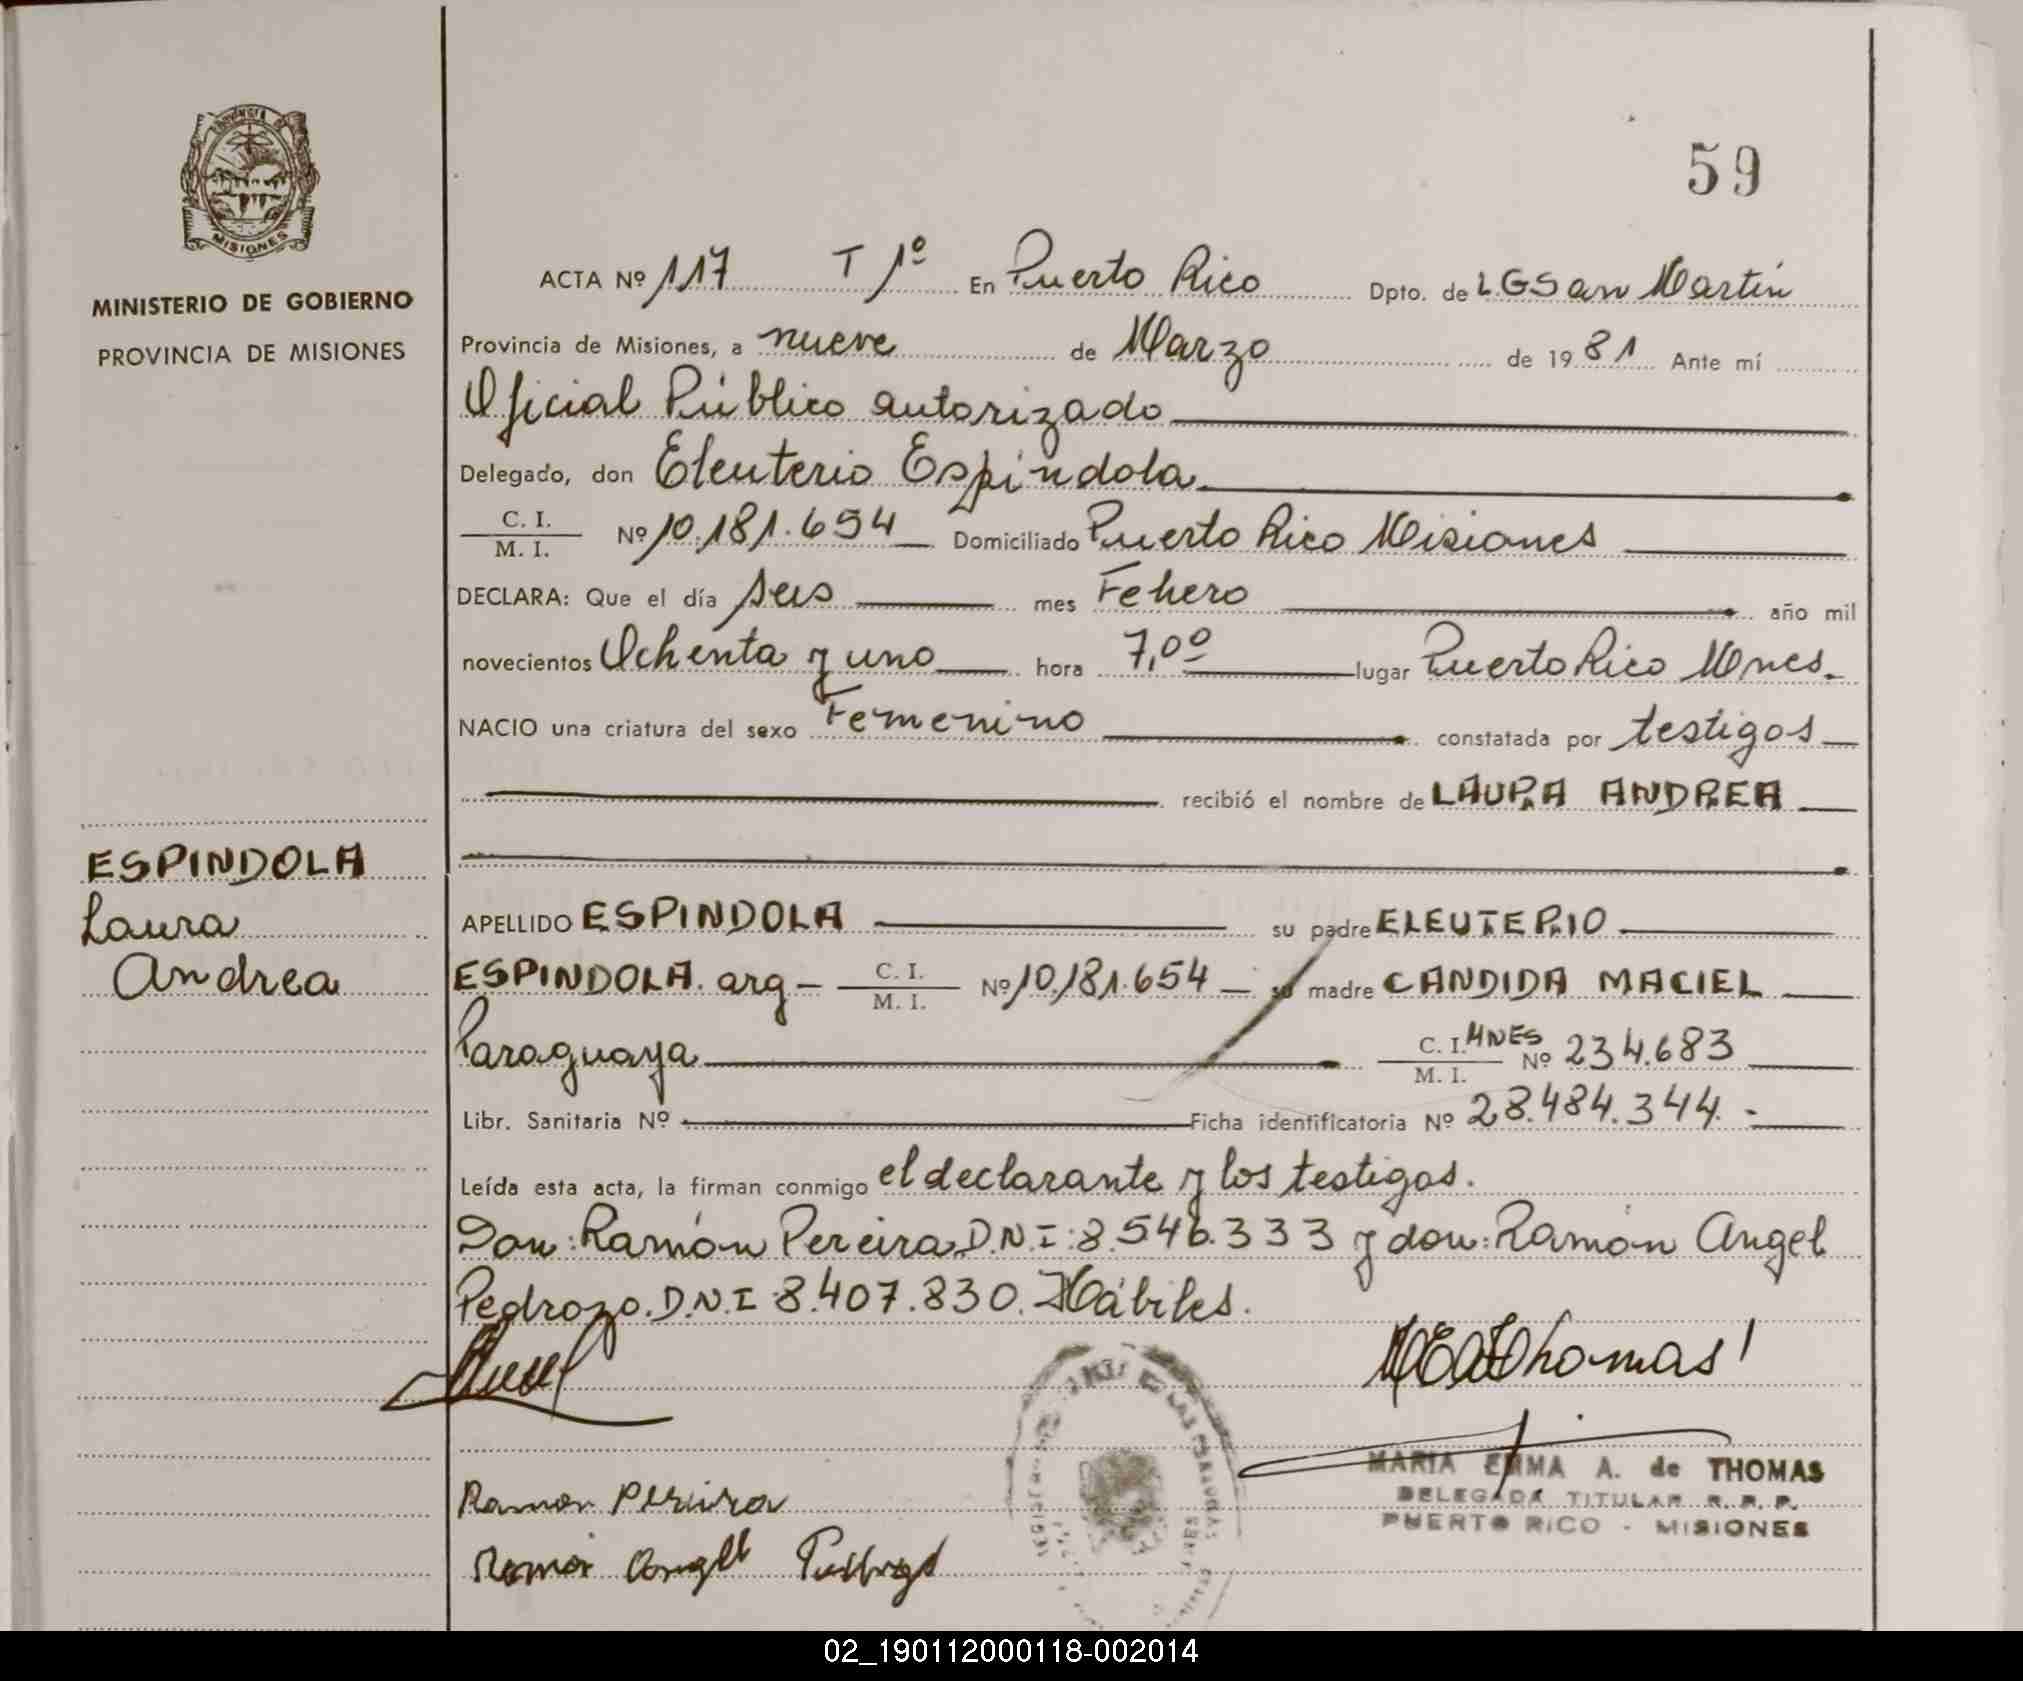 59
MISIONES
MINISTERIO DE GOBIERNO
PROVINCIA DE MISIONES
ESPINDOLA
Laura
Andrea
ACTA Nº 117 T 1º En Puerto Rico Dpto. de L.G San Martín
Provincia de Misiones, a nueve de Marzo de 1981 Ante mí
Oficial Público autorizado
Delegado, don Eleuterio Espíndola
C. I.
M. I. Nº 10.181.654 Domiciliado Puerto Rico Misiones
DECLARA: Que el día seis mes Febero año mil
novecientos Ochenta y uno hora 7,00 lugar Puerto Rico Mnes.
NACIO una criatura del sexo Femenino constatada por testigos
recibió el nombre de LAURA ANDREA
APELLIDO ESPINDOLA su padre ELEUTERIO
ESPINDOLA. arg - C. I.
M. I. Nº 10.181.654 su madre CANDIDA MACIEL
Paraguaya C. I. MNES
M. I. Nº 234.683
Libr. Sanitaria Nº Ficha identificatoria Nº 28.484.344.-
Leída esta acta, la firman conmigo el declarante y los testigos.
Don: Ramón Pereira D.N.I: 8.546.333 y don: Ramón Angel
Pedrozo. D.N.I 8.407.830. Hábiles.
MEAdThomas
MARIA EMMA A. de THOMAS
DELEGADA TITULAR R. P. P.
PUERTO RICO - MISIONES
Ramon Pereira
Ramon Angel
02_190112000118-002014